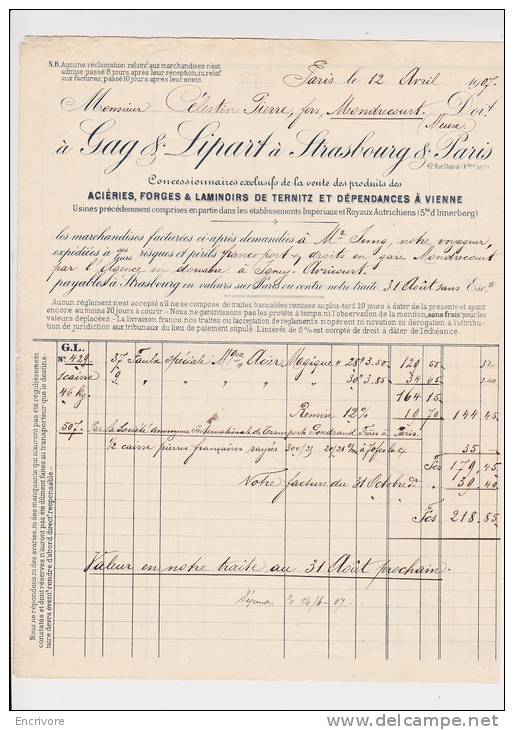 N.B. Aucune réclamation relativ. aux marchandises n'est
admise passé 8 jours après leur réception; ni relat.
aux factures, passé 10 jours après leur envoi.
Paris le 12 Avril 1907.
Monsieur Célestin Pierre, fors, Mondrecourt. Doit
(Meuse)
à Gag & Lipart à Strasbourg & Paris
42, Rue Chabrol (X arrt)
Concessionnaires exclusifs de la vente des produits des
ACIÉRIES, FORGES & LAMINOIRS DE TERNITZ ET DÉPENDANCES À VIENNE
Usines précédemment comprises en partie dans les établissements Impériaux et Royaux Autrichiens (Sté d'Innerberg)
les marchandises facturées ci-après demandées à Mr Jung, notre voyageur,
expédiées à ses risques et périls franco port & droits en gare Mondrecourt
leurs
par l'Agence en douane à Igney-Avricourt.
payables à Strasbourg en valeurs sur Paris ou contre notre traite 31 Août sans Escte
Aucun règlement n'est accepté à il ne se compose de traites bancables remises au plus-tard 20 jours à dater de la présente et ayant
encore au moins 20 jours à courir.- Nous ne garantissons pas les protêts à temps, ni l'observation de la mention, sans frais pour les
valeurs déplacées.- La livraison franco, nos traites ou l'acceptation de règlements n'opèrent ni novation ni dérogation à l'attribu-
tion de juridiction aux tribunaux du lieu de paiement stipulé. L'intérêt de 6% est compté de droit à dater de l'échéance.
Nous ne répondons, ni des avaries, ni des manquants qui n'auront pas été régulièrement
constatés et dont réserves n'auront pas été dûment faites au transporteur que le destina-
taire devra éventt rendre d'abord direct. responsable.
G.L.
No 429 37 Faulx Spéciale Mque Acier Magique " 28° 3.50 129 50
1 caisse 9 " " " " " 30° 3.85 34 65
46 kg 164 15
Remise 12% 19 70 144 45
507. Par la Société Anonyme Internationale de Transports Gondrand Frères à Paris.
1/2 caisse pierres françaises rayées 300/25 20/28 c/m à 70 fcs la cse 35 —
Fcs 179 45
Notre facture du 31 Octobre dr " 39 40
Fcs 218.85
Valeur en notre traite au 31 Août prochain.
14/6-07.